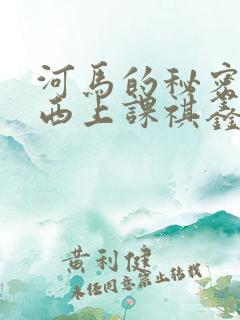 河馬的秘密
西上課祺鑫
黄利健
未经同意禁止转载